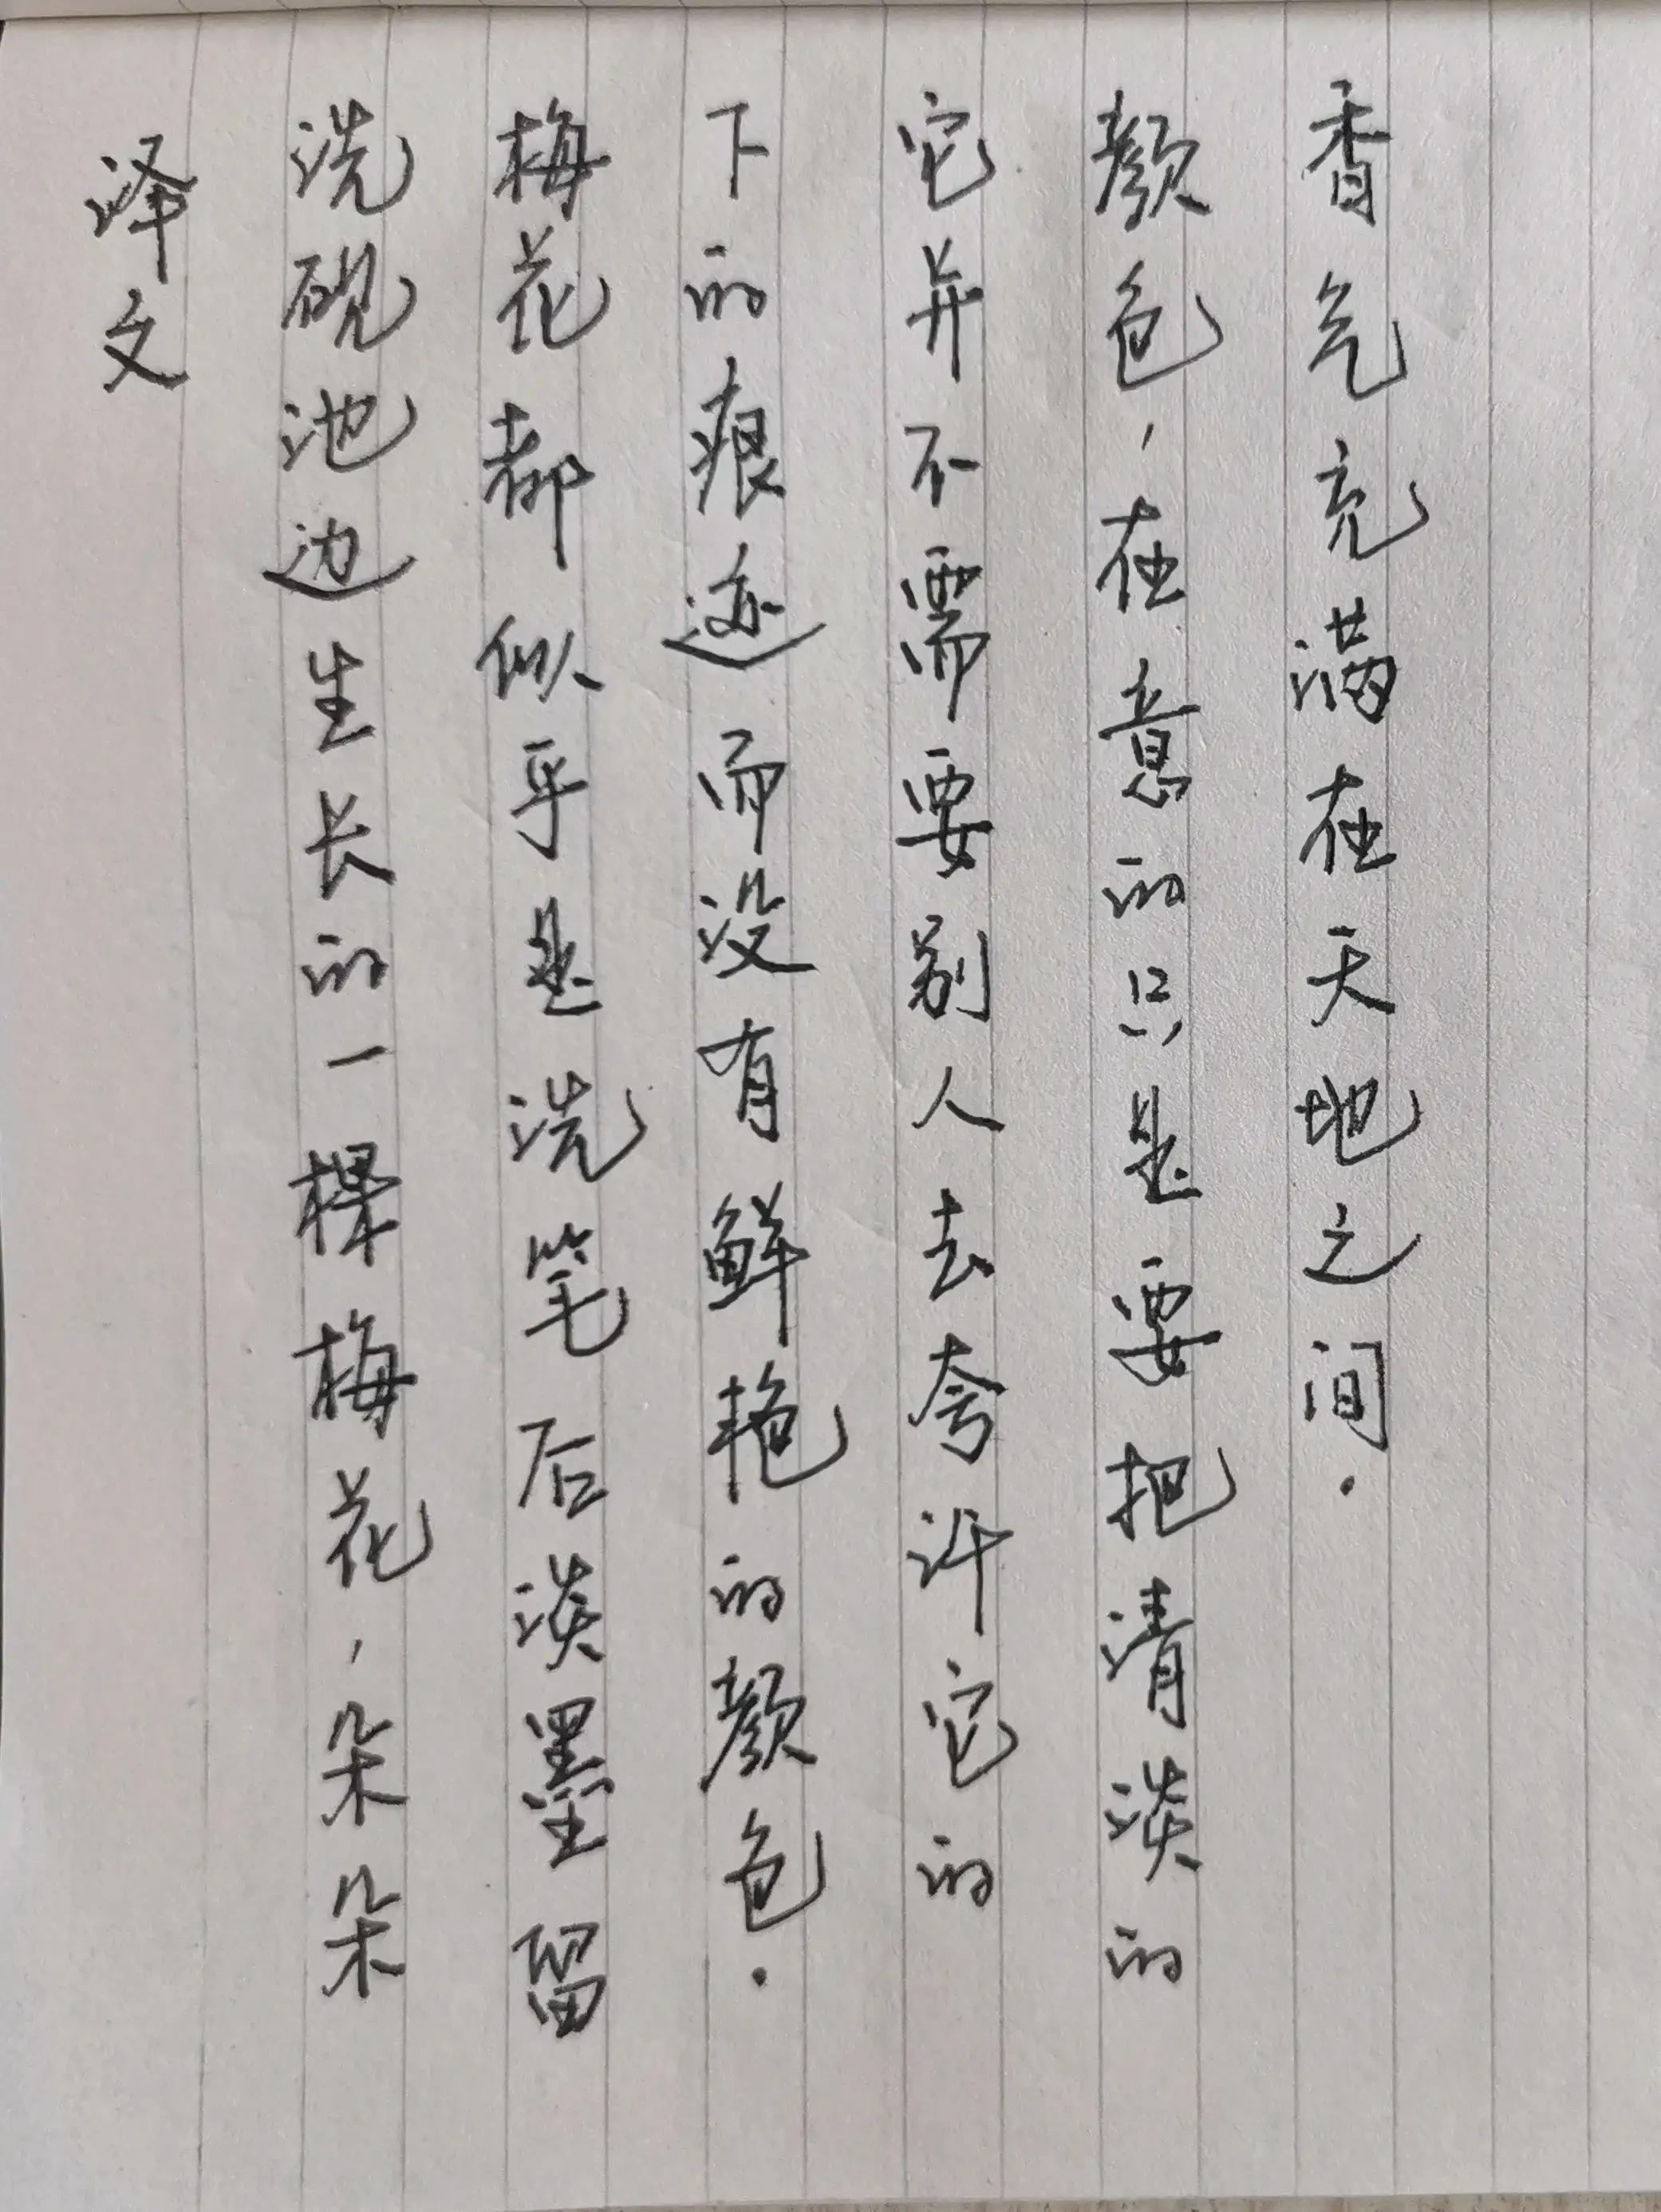 译文
洗砚池边生长的一棵梅花，朵朵
梅花都似乎是洗笔后淡墨留
下的痕迹而没有鲜艳的颜色.
它并不需要别人去夸许它的
颜色，在意的只是要把清淡的
香气充满在天地之间.